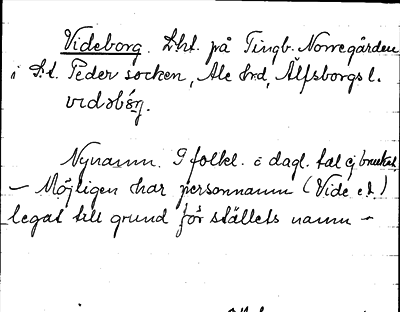 Videborg. Lht. på Tingb. Norregården
i St. Peder socken, Ale hrd, Älfsborgs l.
vɪdɔbǿrg.
Nynamn. I folkl. o dagl. tal ej brukat
– Möjligen har personnamn (Vide el.)
legat till grund för ställets namn –